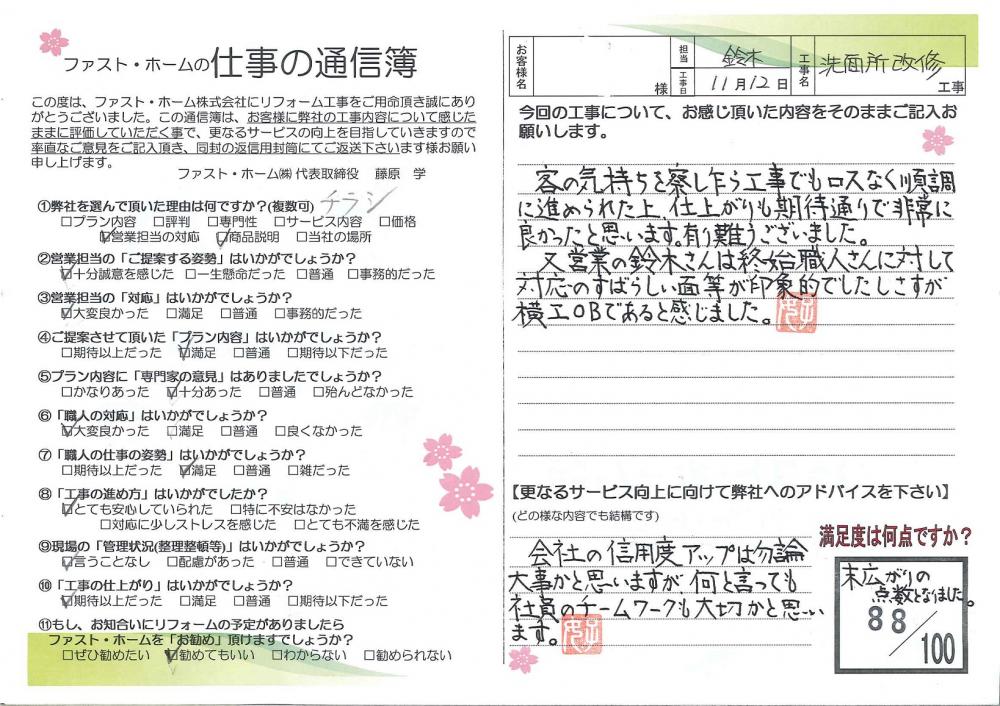 ファスト・ホームの仕事の通信簿
この度は、ファスト・ホーム株式会社にリフォーム工事をご用命頂き誠にあり
がとうございました。この通信簿は、お客様に弊社の工事内容について感じた
ままに評価していただく事で、更なるサービスの向上を目指していきますので
率直なご意見をご記入頂き、同封の返信用封筒にてご返送下さいます様お願い
申し上げます。
ファスト・ホーム㈱ 代表取締役 藤原 学
①弊社を選んで頂いた理由は何ですか?(複数可) チラシ
□プラン内容 □評判 □専門性 □サービス内容 □価格
☑営業担当の対応 ☑商品説明 □当社の場所
②営業担当の「ご提案する姿勢」はいかがでしょうか?
☑十分誠意を感じた □一生懸命だった □普通 □事務的だった
③営業担当の「対応」はいかがでしょうか?
☑大変良かった □満足 □普通 □事務的だった
④ご提案させて頂いた「プラン内容」はいかがでしょうか?
□期待以上だった ☑満足 □普通 □期待以下だった
⑤プラン内容に「専門家の意見」はありましたでしょうか?
□かなりあった ☑十分あった □普通 □殆んどなかった
⑥「職人の対応」はいかがでしょうか?
☑大変良かった □満足 □普通 □良くなかった
⑦「職人の仕事の姿勢」はいかがでしょうか?
□期待以上だった ☑満足 □普通 □雑だった
⑧「工事の進め方」はいかがでしたか?
☑とても安心していられた □特に不安はなかった
□対応に少しストレスを感じた □とても不満を感じた
⑨現場の「管理状況(整理整頓等)」はいかがでしょうか?
☑言うことなし □配慮があった □普通 □できていない
⑩「工事の仕上がり」はいかがでしょうか?
☑期待以上だった □満足 □普通 □期待以下だった
⑪もし、お知合いにリフォームの予定がありましたら
ファスト・ホームを「お勧め」頂けますでしょうか?
□ぜひ勧めたい ☑勧めてもいい □わからない □勧められない
お客様名 様 担当 鈴木 工事名 洗面所改修 工事
工事日 11月12日
今回の工事について、お感じ頂いた内容をそのままご記入お
願いします。
客の気持ちを察し乍ら工事でもロスなく順調
に進められた上、仕上がりも期待通りで非常に
良かったと思います。有り難うございました。
又営業の鈴木さんは終始職人さんに対して
対応のすばらしい面等が印象的でしたしさすが
横工OBであると感じました。
【更なるサービス向上に向けて弊社へのアドバイスを下さい】
(どの様な内容でも結構です)
会社の信用度アップは勿論
大事かと思いますが、何と言っても
社員のチームワークも大切かと思い
ます。
満足度は何点ですか?
末広がりの
点数となりました。
88/100